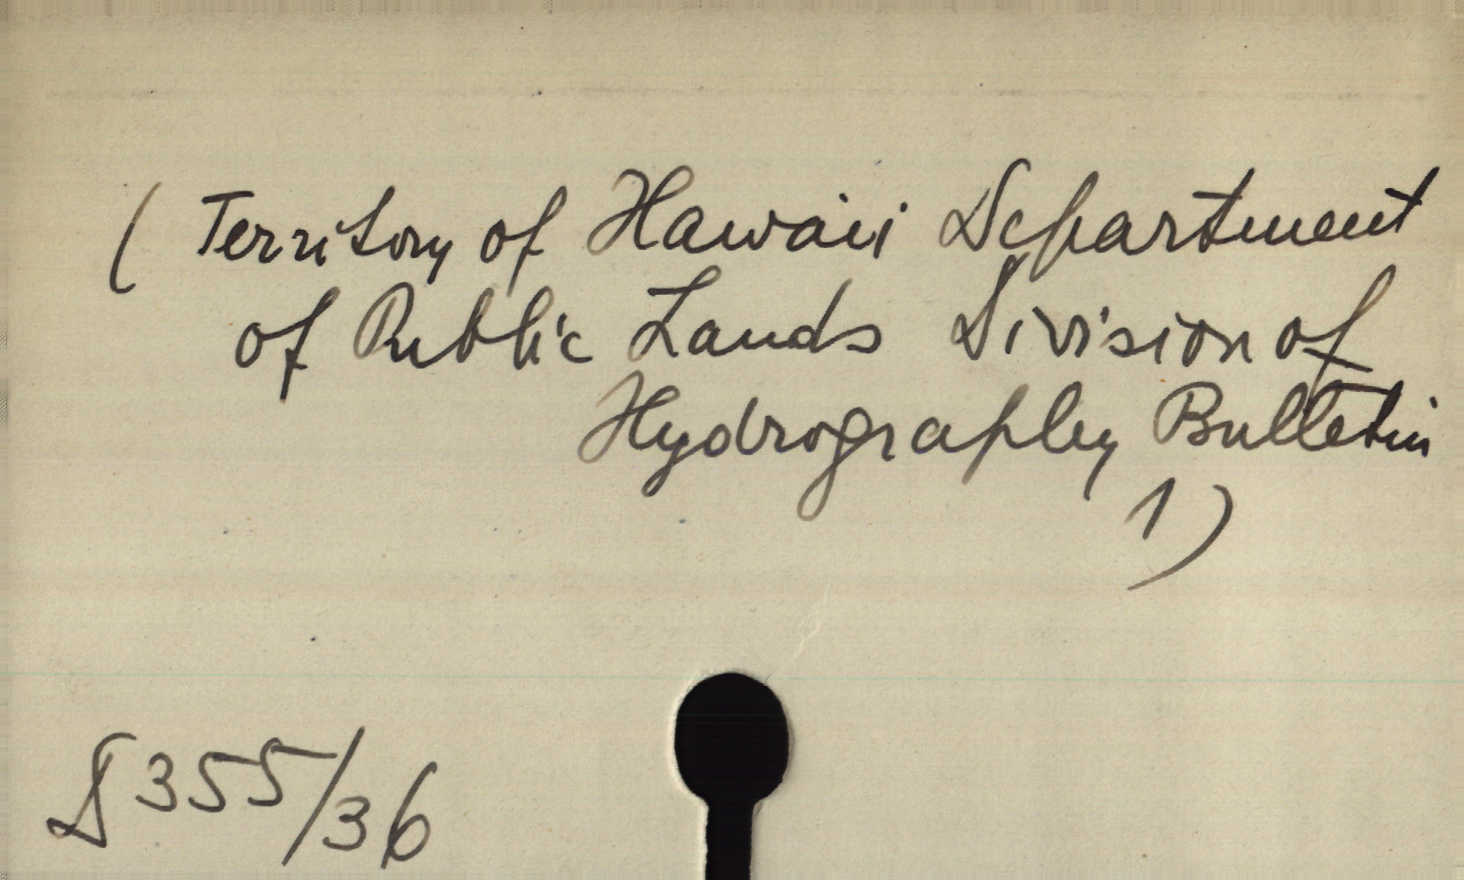 ( Territory of Hawaii Department
of Public Lands Division of
Hydrography Bulletin
1)
S 355/36